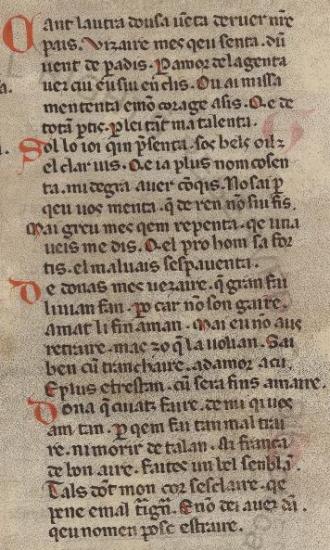 Cant laura dousa uenta deruer nr̃e
pais. Vizaire mes qeu senta. dũ
uent de ꝑadis. Ꝑ amor de la genta
uer cui eu sui ẽclis. On ai missa
mententa emõ corage asis. Q̃e de
totaꝰ ꝑtis. ꝑ lei tãt ma talenta.
Sol lo ioi qim p̃senta. sos bels oilz
el clar uis. Q̃e ia plus nom cosen
ta. mi degra auer cõqis. No sai ꝑ
qeu uos menta. q̃ de ren nõ sui fis.
Mai greu mes qem repenta. qe una
ueis me dis. Q̃el pro hom sa for
tis. el maluais sespauenta.
De donas mes uezaire. q̃ gran fai
liman fan. ꝑo car nõ son gaire.
amat li fin aman. Mai eu nõ aus
retraire. mas zo q̃ la uolian. Sai
ben cũ trichaire. ad amor a cu.
E plus et restan. cũ sera fins amaire.
Dona q̃ cuatz faire. de mi qi uos
am tan. ꝑ qem fai tan mal trai
re. ni morir de talan. Ai franca
de bon aire. faitoc un bel senblã.
Tals dõt mon cor sesclaire. qe
pene e mal t̃gñ. E nõ dei auer dã.
qeu nomen posc estraire.